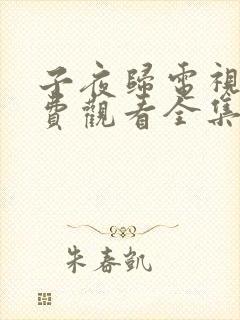 子夜歸電視
費觀看全集
朱春凱